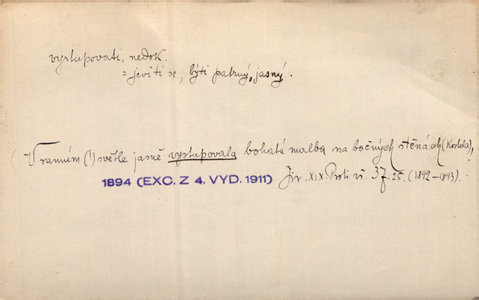 vystupovati, nedok.
= jeviti se, býti patrný, jasný.
(V ranním (!) světle jasně vystupovala bohatá malba na bočných stěnách (kostela),
1894 (EXC. Z 4. VYD. 1911) Jir. XIX Proti vš. 37. 25. (1892–1893).